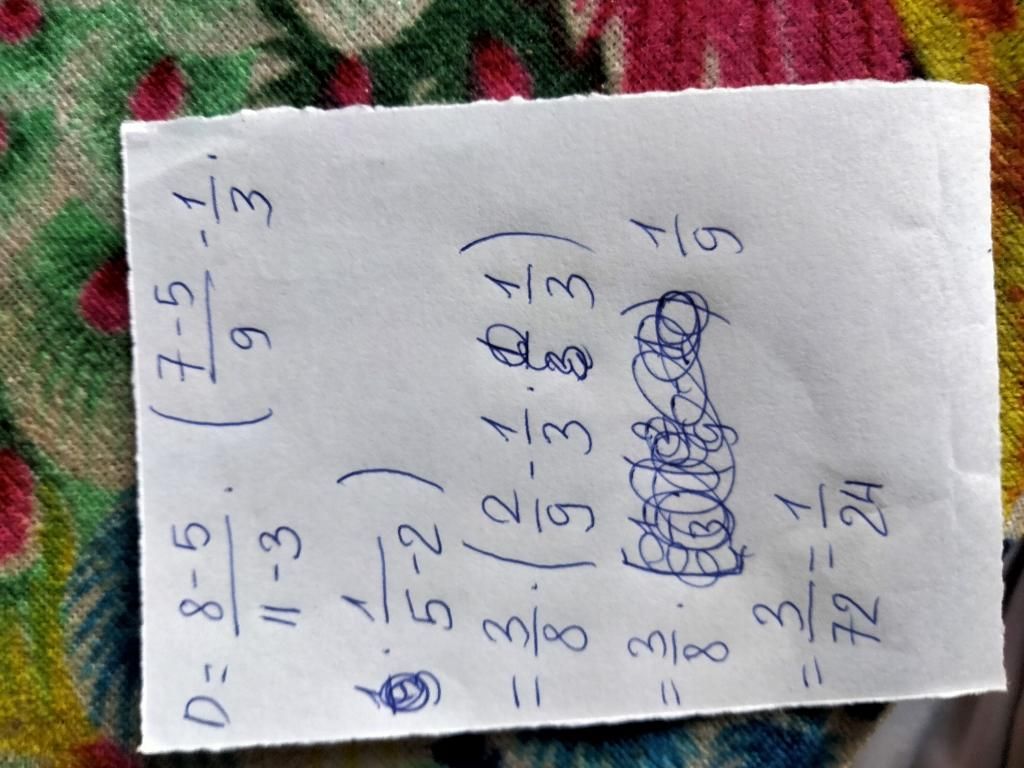 D = 8-5/11-3 · (7-5/9 - 1/3 ·
· 1/5-2)
= 3/8 · (2/9 - 1/3 · 1/3)
= 3/8 · 1/9
= 3/72 = 1/24